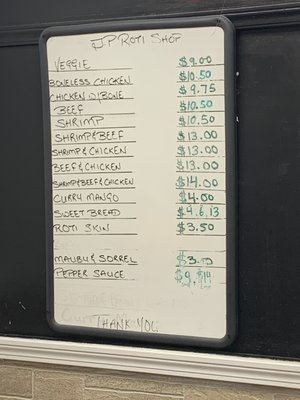 J.P ROTI SHOP
VEGGIE $9.00
BONELESS CHICKEN $10.50
CHICKEN W/BONE $9.75
BEEF $10.50
SHRIMP $10.50
SHRIMP & BEEF $13.00
SHRIMP & CHICKEN $13.00
BEEF & CHICKEN $13.00
SHRIMP & BEEF & CHICKEN $14.00
CURRY MANGO $4.00
SWEET BREAD $4.6.13
ROTI SKIN $3.50
MAUBY & SORREL
PEPPER SAUCE
THANK YOU